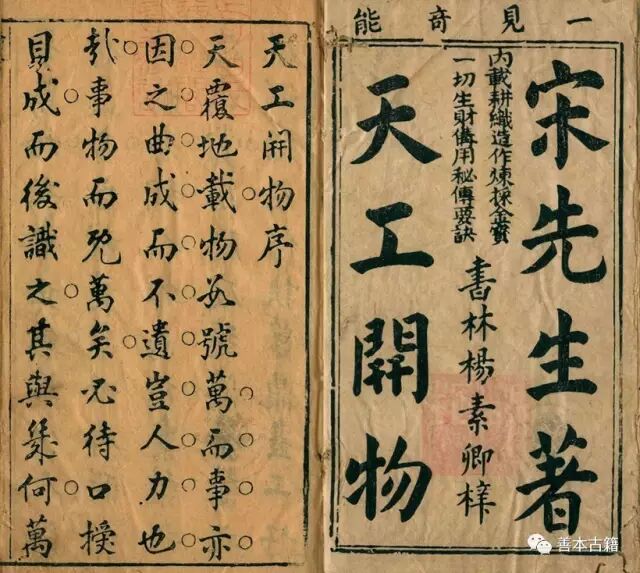 一見奇能
宋先生著
內載耕織造作煉採金寶
一切生財備用秘傳要訣
書林楊素卿梓
天工開物
天工開物序
天覆地載物數號萬而事亦
因之曲成而不遺豈人力也
哉事物而既萬矣必待口授
目成而後識之其與幾何萬
善本古籍